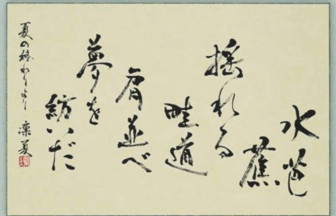 水芭
蕉
揺れる
畦道
肩並べ
夢を
紡いだ
夏の終わりより
凛夏